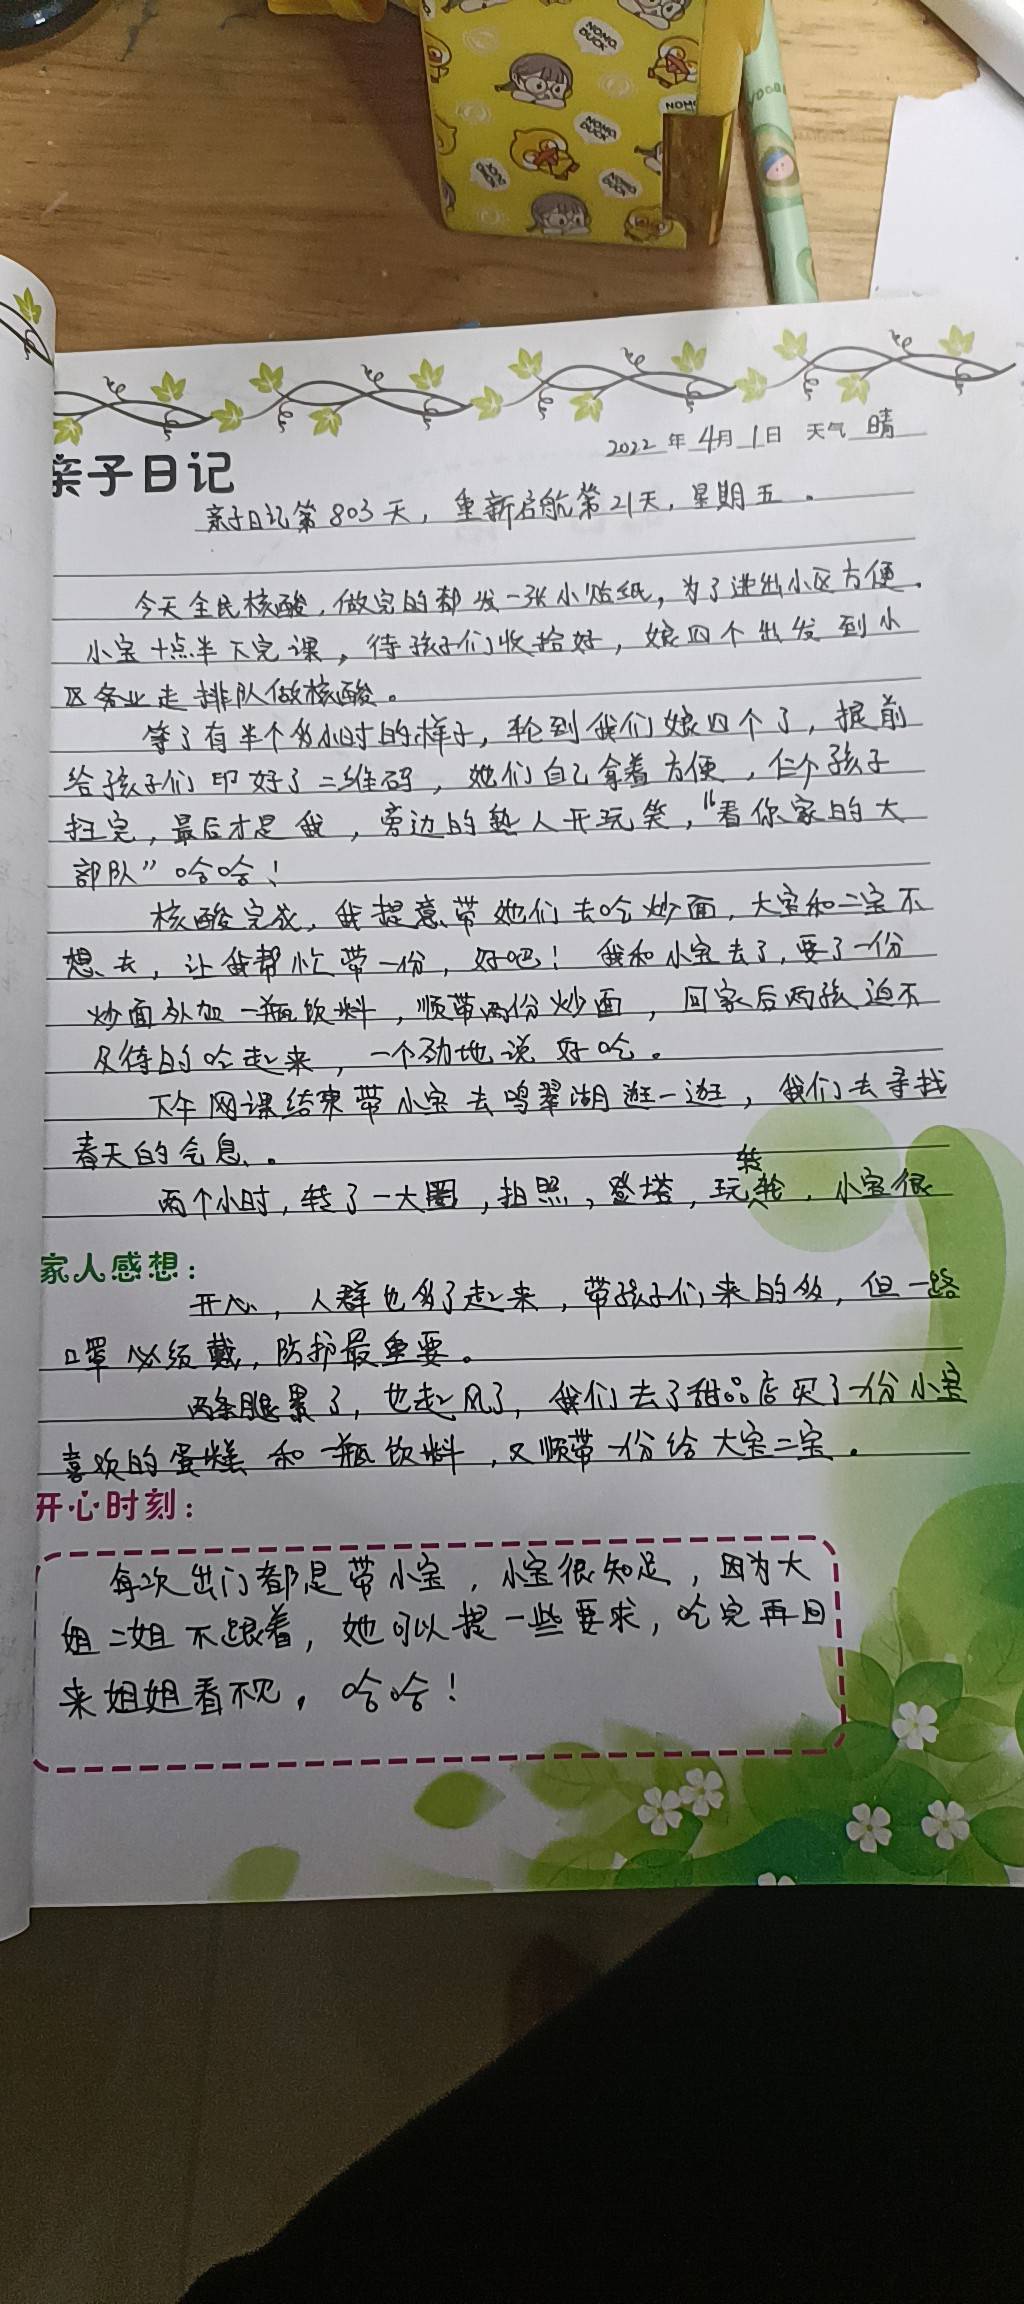 NOMO DUCK
NOMO DUCK
NOMO DUCK
NOMO DUCK
2022年4月1日 天气 晴
亲子日记
亲子日记第803天，重新启航第21天，星期五。
今天全民核酸，做完的都发一张小贴纸，为了进出小区方便。
小宝十点半下完课，待孩子们收拾好，娘四个出发到小
区务业走排队做核酸。
等了有半个多小时的样子，轮到我们娘四个了，提前
给孩子们印好了二维码，她们自己拿着方便，仨个孩子
扫完，最后才是我，旁边的熟人开玩笑，“看你家的大
部队”哈哈！
核酸完成，我提意带她们去吃炒面，大宝和二宝不
想去，让我帮忙带一份，好吧！我和小宝去了，要了一份
炒面外加一瓶饮料，顺带两份炒面，回家后两孩迫不
及待的吃起来，一个劲地说好吃。
下午网课结束带小宝去鸣翠湖逛一逛，我们去寻找
春天的气息。
两个小时，转了一大圈，拍照，登塔，玩转轮，小宝很
家人感想：
开心，人群也多了起来，带孩子们来的多，但一路
口罩必须戴，防护最重要。
两条腿累了，也起风了，我们去了甜品店买了一份小宝
喜欢的蛋糕和一瓶饮料，又顺带一份给大宝二宝。
开心时刻：
每次出门都是带小宝，小宝很知足，因为大
姐二姐不跟着，她可以提一些要求，吃完再回
来姐姐看不见，哈哈！